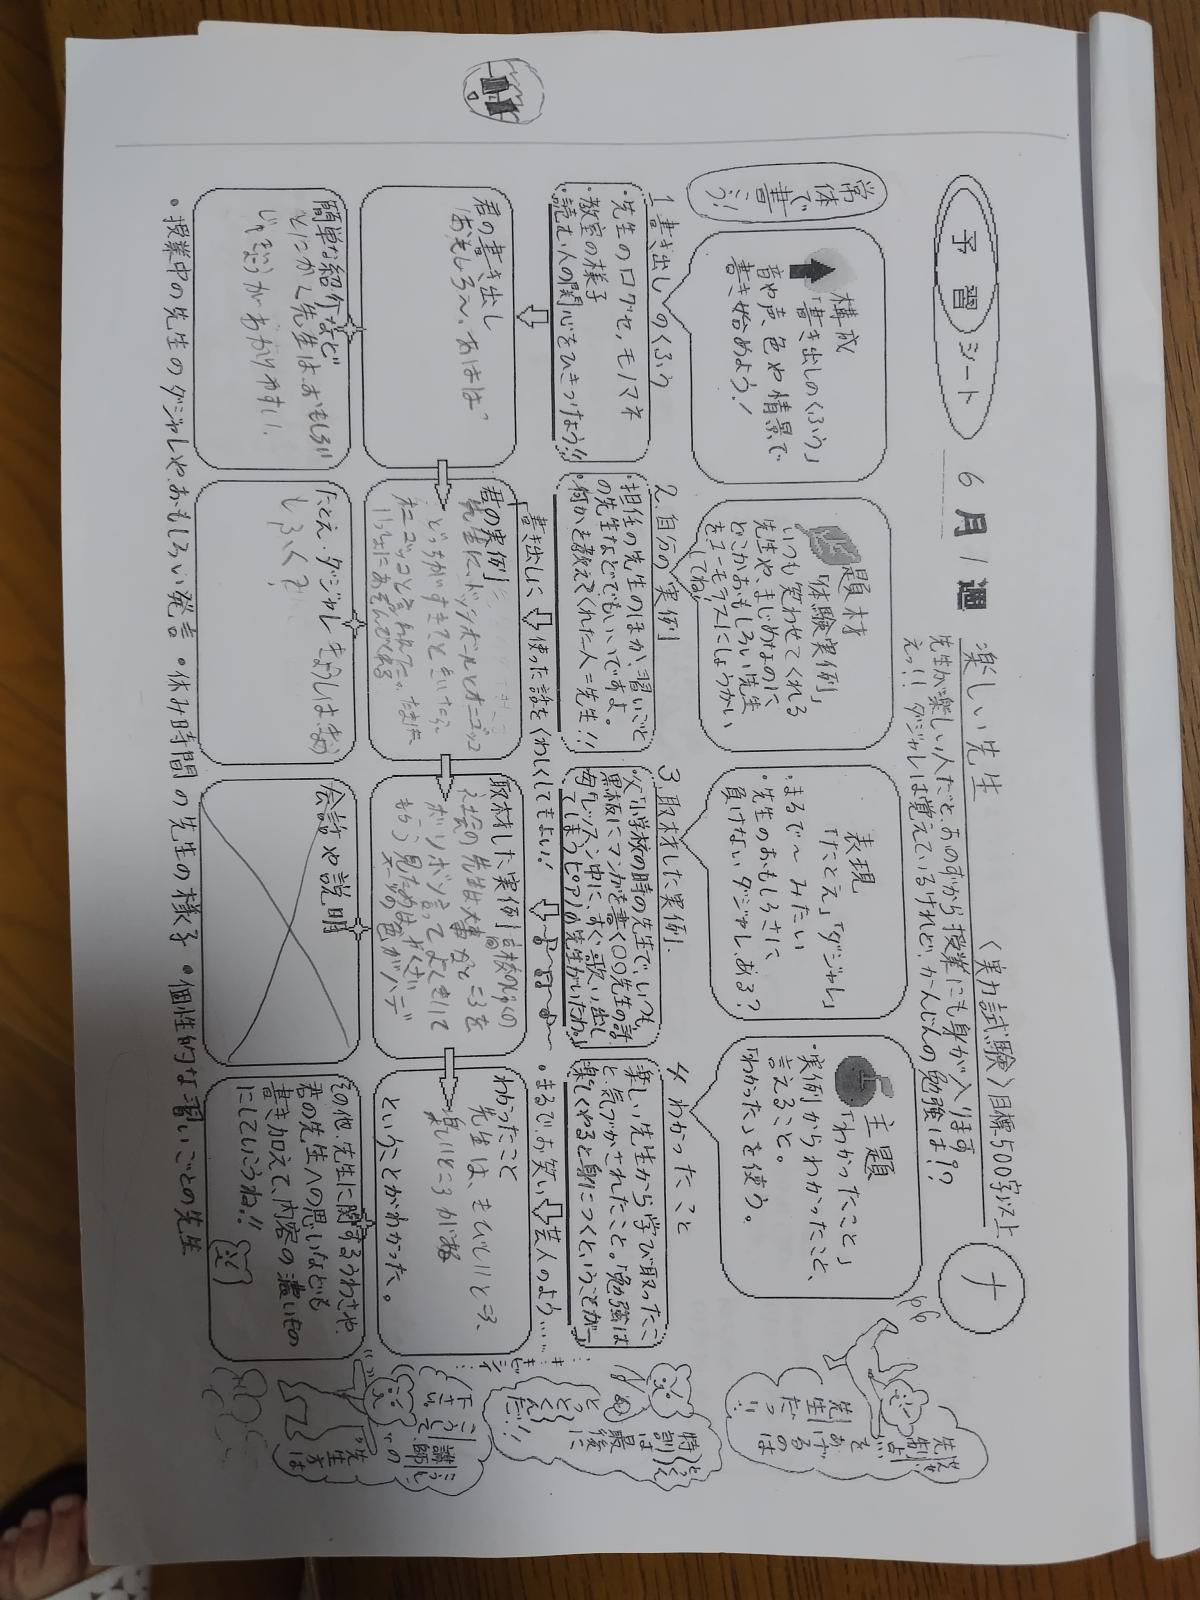 予習シート
6月1週
楽しい先生
〈実力試験〉目標500字以上
ナ
先生が楽しい人だと、あのずから授業にも身が入ります
えっ!!ダジャレは覚えているけれど、かんじんの勉強は!?
常体で書こう!
構成
「書き出しのくふう」
音や声、色や情景で
書き始めよう!
題材
「体験実例」
いつも笑わせてくれる
先生や、まじめなのに
どこかおもしろい先生
をユーモラスにしょうかい
してね!
表現
「たとえ」「ダジャレ」
・まるで〜みたい
・先生のおもしろさに
負けないダジャレ、ある?
主題
「わかったこと」
・実例からわかったこと、
言えること。
「わかった」を使う。
1 書き出しのくふう
・先生の口グセ、モノマネ
・教室の様子
・読む人の関心をひきつけよう!!
2.自分の実例
・担任の先生のほか、習いごと
の先生などでもいいですよ。
・何かを教えてくれた人=先生!!
3.取材した実例.
父「小学校の時の先生で、いつも
黒板にマンガを書く〇〇先生の話
母「レッスン中に、すぐ歌い出し
てしまうピアノの先生がいたわ。」
4 わかったこと
楽しい先生から学び取ったこ
と、気づかされたこと。「勉強は
楽しくやると身につくということが〜
「書き出しに使った話をくわしくしてもよい!
・まるでお笑い芸人のよう……
君の書き出し
おもしろ〜、あはは
君の実例
先生に、ドッジボールとオニゴッコ
どっちがすき?ときいたら、
取材した実例
社会の先生は大事なところを
ボソボソ言って
わかったこと
先生は、きびしいところ、
楽しいところが
ということがわかった。
簡単な紹介など
とにかく先生は、おもしろい
たとえ・ダジャレ
会話や説明
その他、先生に関するうわさや、
君の先生への思いなども
書き加えて、内容の濃いもの
にしていこうね!!
・授業中の先生のダジャレや、おもしろい発言 ・休み時間の先生の様子 ・個性的な習いごとの先生
先生を
あげるの
は
特訓は
最後に
とっくんだ!!
講師の
先生方は